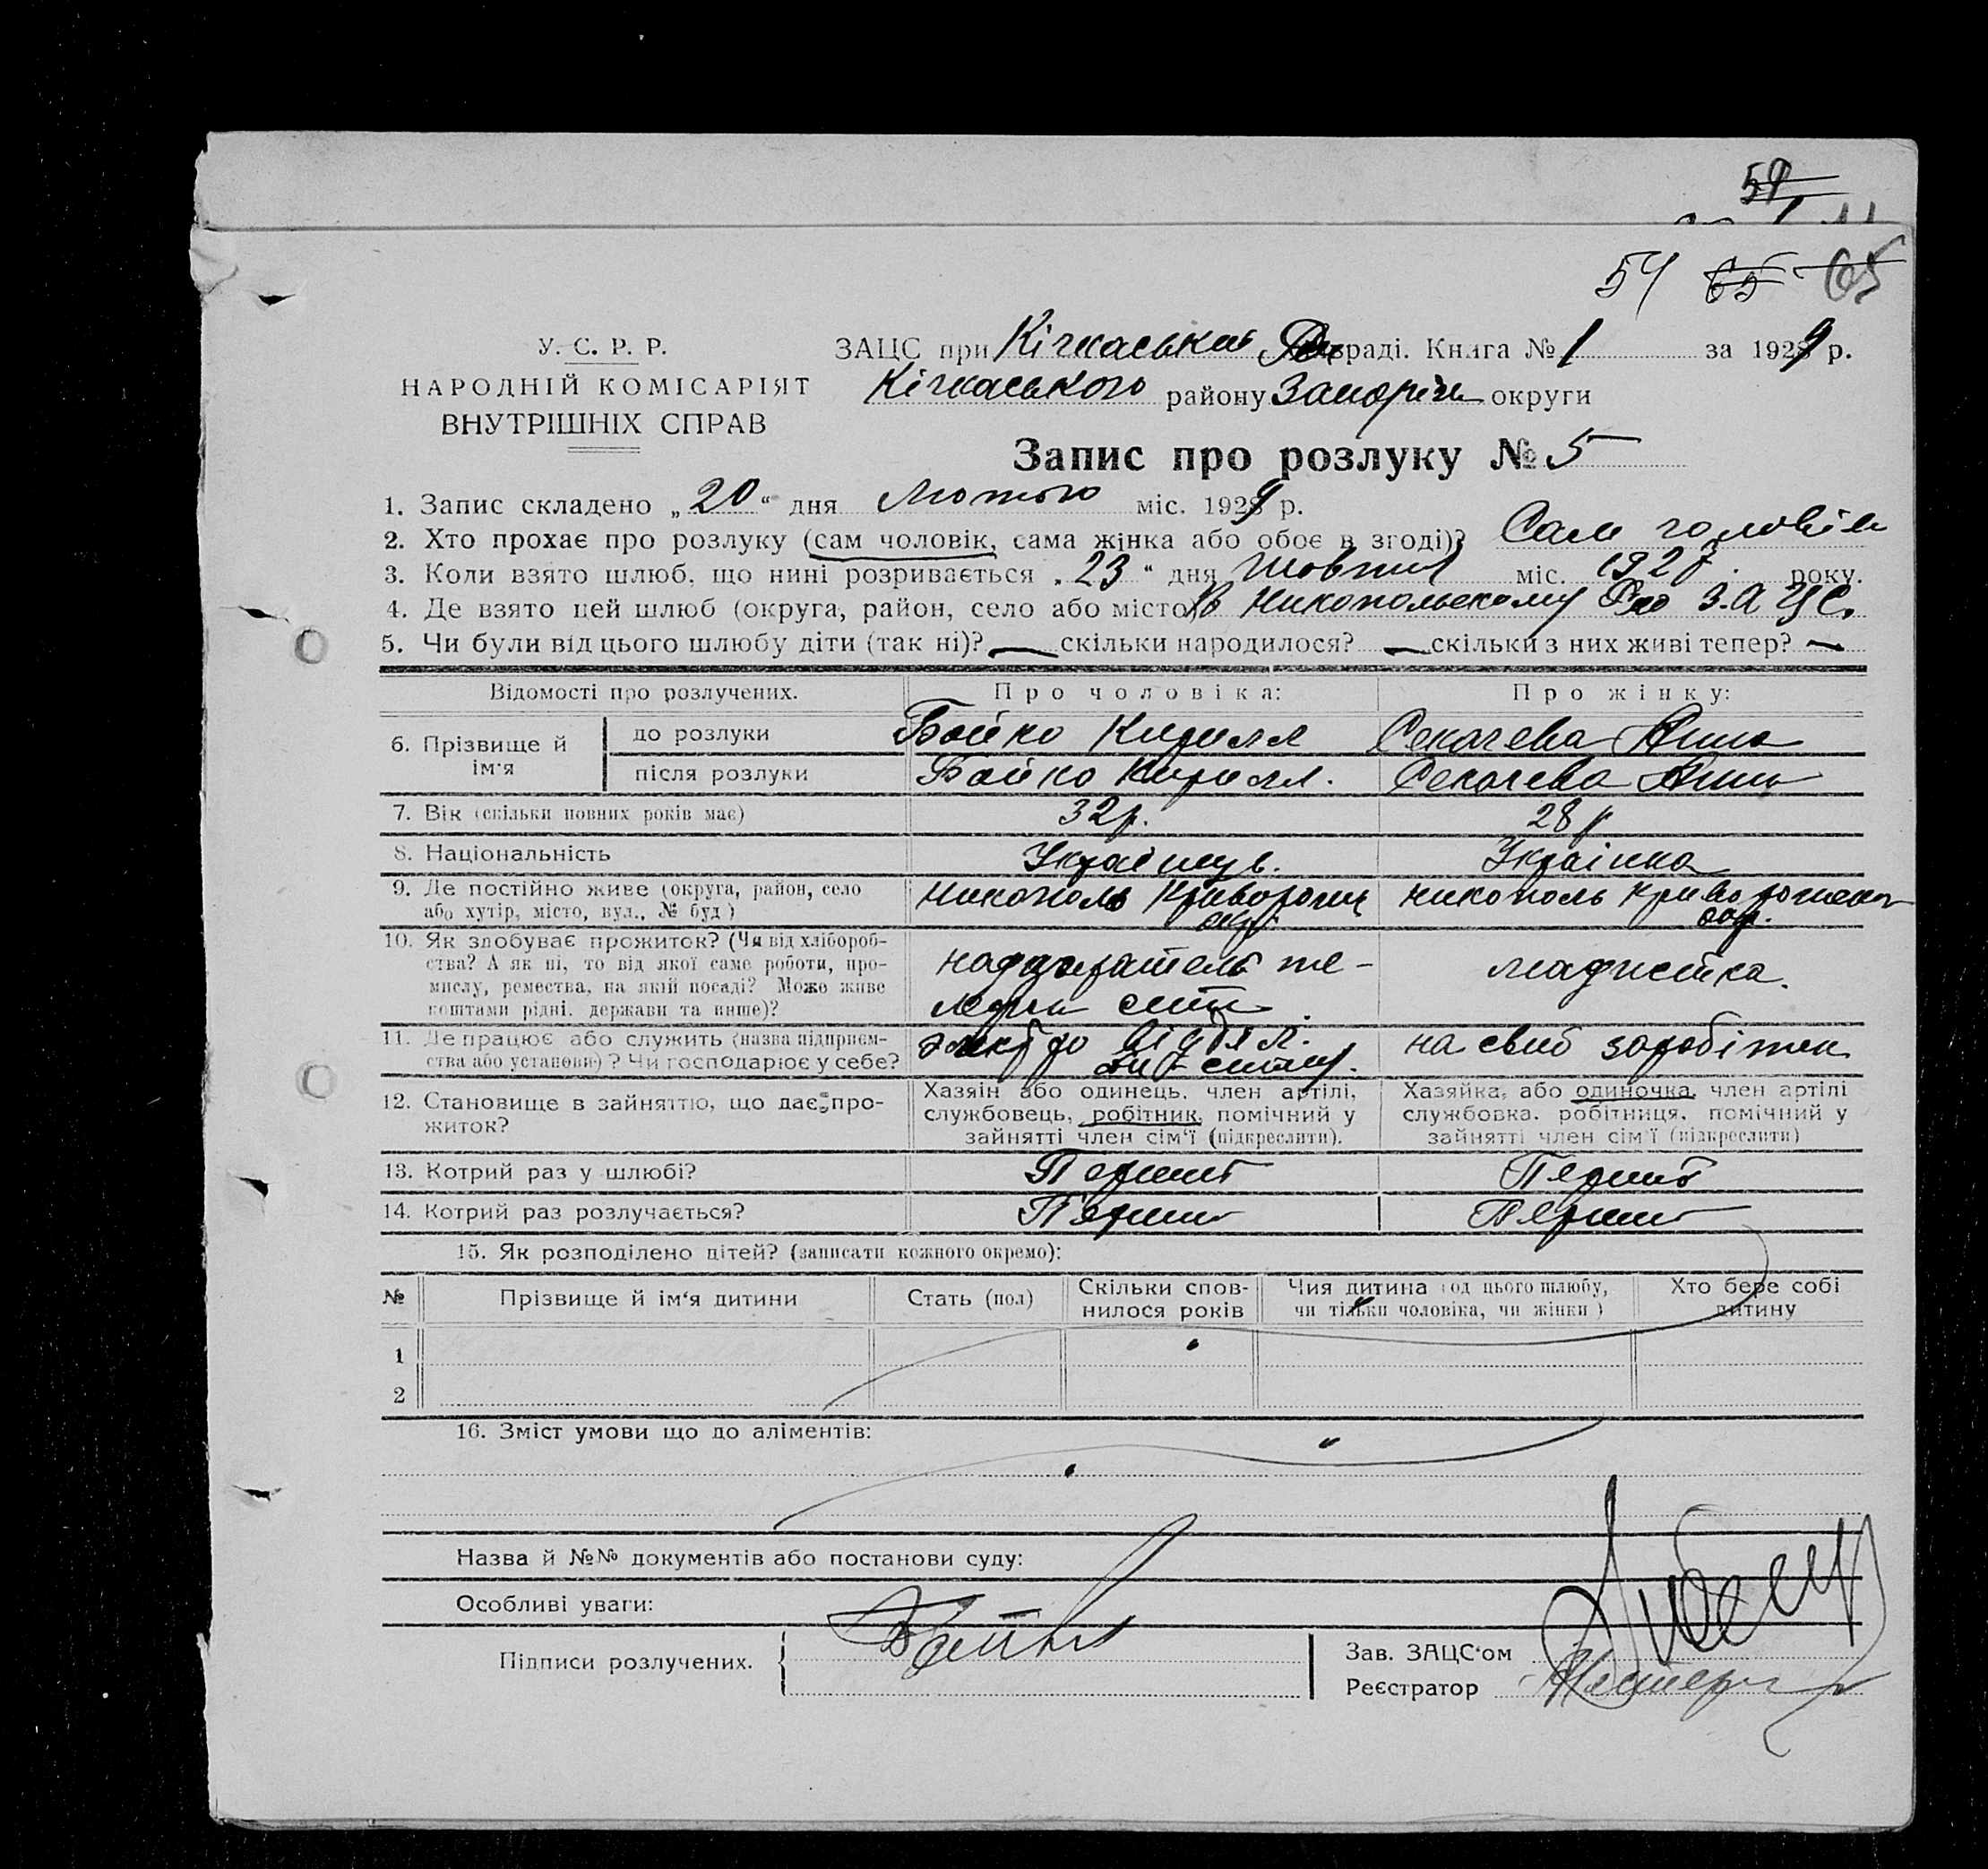 59
54 65 65
У. С. Р. Р.
НАРОДНІЙ КОМІСАРІЯТ
ВНУТРІШНІХ СПРАВ
ЗАЦС при Кічкаській раді. Книга № 1 за 1929 р.
Кічкаського району Запоріж округи
Запис про розлуку № 5
1. Запис складено „20“ дня Лютого міс. 1929 р.
2. Хто прохає про розлуку (сам чоловік, сама жінка або обоє в згоді)? Сам чоловік
3. Коли взято шлюб, що нині розривається „23“ дня Жовтня міс. 1927. року.
4. Де взято цей шлюб (округа, район, село або місто) В Никопольскому З.А Ц С.
5. Чи були від цього шлюбу діти (так ні)? — скільки народилося? — скільки з них живі тепер? —
Відомості про розлучених. Про чоловіка: Про жінку:
6. Прізвище й ім'я до розлуки Бойко Кирилл Секачева Анна
після розлуки Бойко Кирилл. Секачева Анна
7. Вік (скільки повних років має) 32р. 28 р
8. Національність Українець. Українка
9. Де постійно живе (округа, район, село Никополь Криворожск Никополь Криворожской
або хутір, місто, вул., № буд) окр. окр.
10. Як здобуває прожиток? (Чи від хлібороб-
ства? А як ні, то від якої саме роботи, про- модистка.
мислу, ремества, на якій посаді? Може живе
коштами рідні, держави та инше)?
11. Де працює або служить (назва підприєм- электро відділ. на свій заробіток
ства або установи)? Чи господарює у себе?
12. Становище в зайняттю, що дає про-
житок?
Хазяін або одинець, член артілі,
службовець, робітник, помічний у
зайнятті член сім'ї (підкреслити).
Хазяйка, або одиночка, член артілі
службовка, робітниця, помічний у
зайнятті член сім'ї (підкреслити)
13. Котрий раз у шлюбі? Перший Перший
14. Котрий раз розлучається? Перший Перший
15. Як розподілено дітей? (записати кожного окремо):
№ Прізвище й ім'я дитини Стать (пол) Скільки спов-нилося років Чия дитина (од цього шлюбу, чи тільки чоловіка, чи жінки) Хто бере собі дитину
1
2
16. Зміст умови що до аліментів:
Назва й №№ документів або постанови суду:
Особливі уваги:
Підписи розлучених. Бойко
Зав. ЗАЦС'ом
Реєстратор